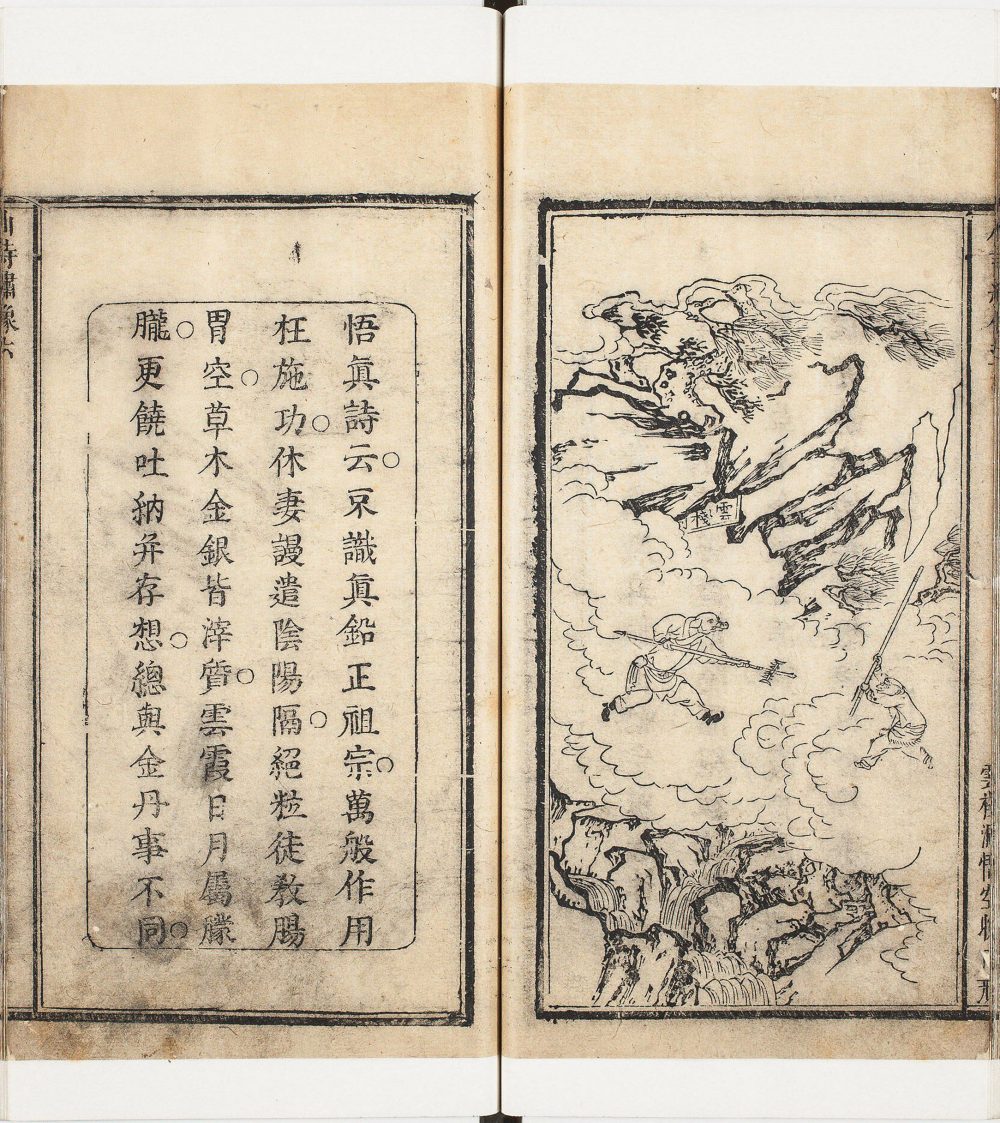 雲棧洞悟空收八戒
雲棧洞
悟眞詩云不識眞鉛正祖宗萬般作用
枉施功休妻謾遣陰陽隔絕粒徒敎腸
胃空草木金銀皆滓質雲霞日月屬朦
朧更饒吐納并存想總與金丹事不同